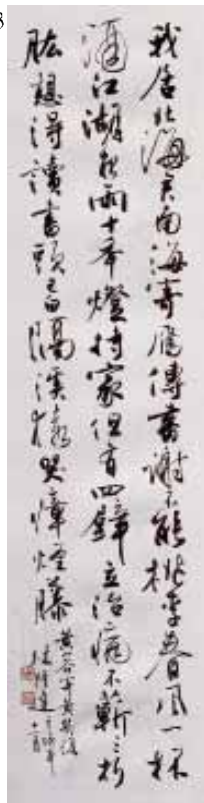 8
我居北海君南海寄雁傳書謝不能桃李春風一杯
酒江湖夜雨十年燈持家但有四壁立治病不蘄三折
肱想得讀書頭已白隔溪猿哭瘴煙藤